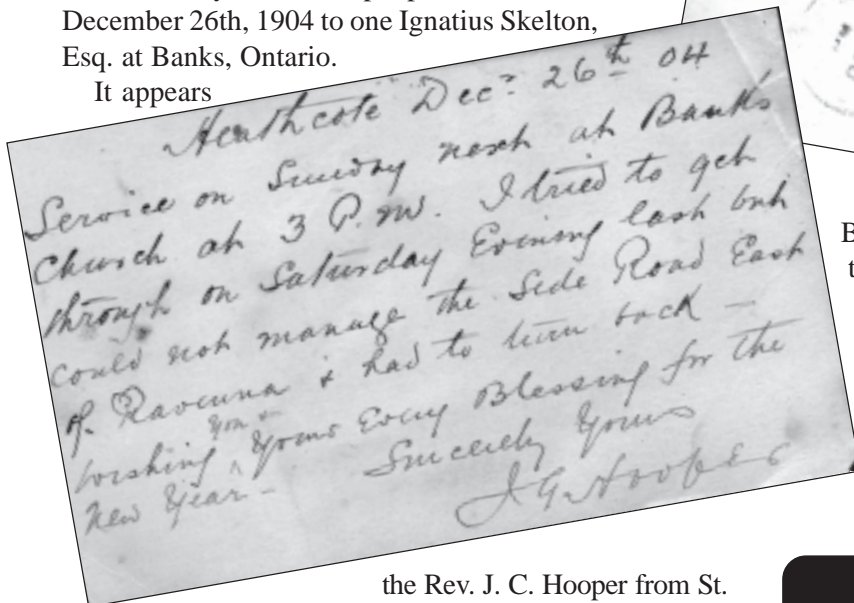 December 26th, 1904 to one Ignatius Skelton,
Esq. at Banks, Ontario.
It appears
Heathcote Dec. 26th 04
Service on Sunday next at Banks
Church at 3 P.M. I tried to get
through on Saturday Evening last but
could not manage the Side Road East
of Ravenna & had to turn back —
wishing you & yours Every Blessing for the
New Year —
Sincerely Yours
J G Hooper
B
t
the Rev. J. C. Hooper from St.